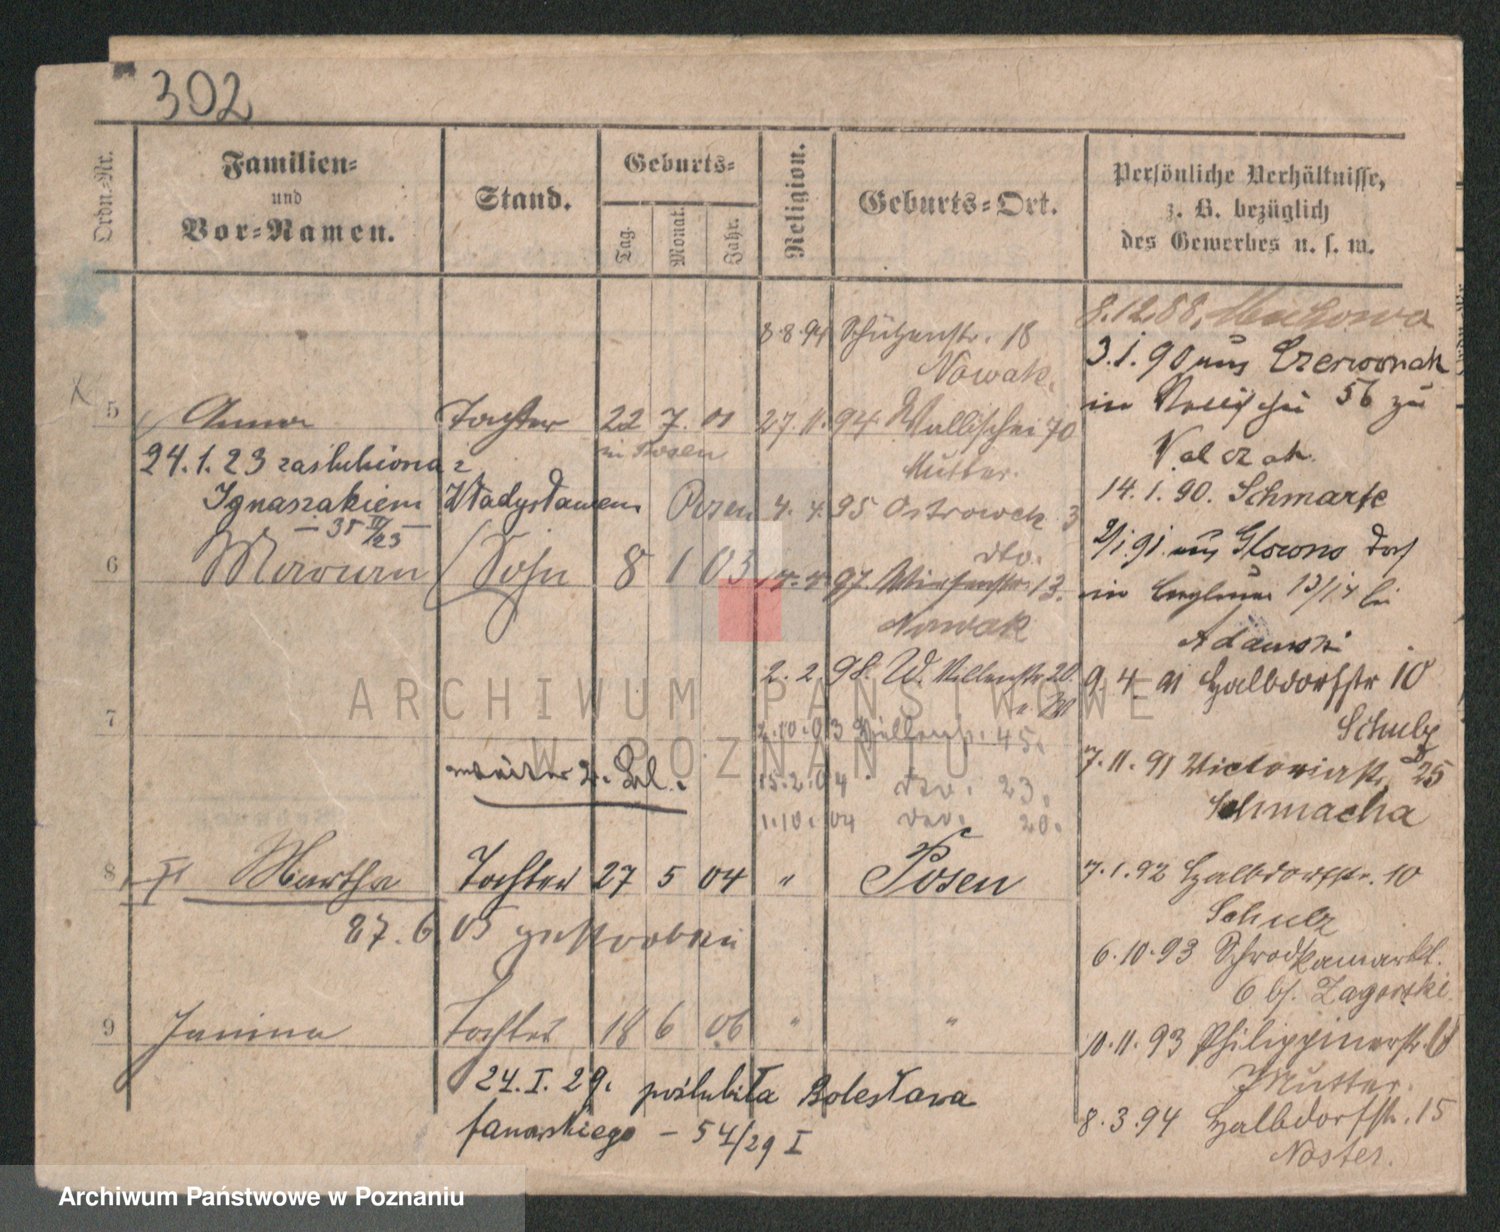 302
Ordn.-Nr.
Familien-
und
Vor-Namen.
Stand.
Geburts-
Tag.
Monat.
Jahr.
Religion.
Geburts-Ort.
Persönliche Verhältnisse,
z. B. bezüglich
des Gewerbes u. s. w.
8.12.88.
8.8.94 Schützenstr. 18
Nowak.
3.1.90 aus Czerwonak
in Wallischei 56 zu
Walczak.
5 Anna Tochter 22 7. 01 27.11.94 Wallischei 70
in Posen
Mutter.
24.1.23 zaślubiona z
Ignaszakiem Władysławem Posen 4. 4. 95 Ostrowek 3
- 35 III/23 -
dto.
14.1.90. Schmarse
2/1.91. aus Glowno Dorf
in 13/14 bei
Adamski
6 Sohn 8 1 03 14.4.97. Wiesenstr. 13.
Nowak
2. 2. 98. W. 20.
9. 4. 91 Halbdorfstr 10
Schulz
7
2.10.03 45.
weiter 2. Bl.
15.2.04 dto. 23.
1.10.04 dto. 20.
7.11.91 Victoriastr 25
Schmacha
8 Martha Tochter 27 5 04 " Posen
27.6.05 gestorben
7.1.92 Halbdorfstr. 10
Schulz
6.10.93 Schrodkamarkt.
6 bf. Zagorski.
9 Janina Tochter 18 6 06 " "
10.11.93 Philippinerstr.
Mutter.
24.I.29. poślubiła Bolesława
Janowskiego - 54/29 I
8.3.94 Halbdorfstr. 15
Noster.
ARCHIWUM PAŃSTWOWE
W POZNANIU
Archiwum Państwowe w Poznaniu